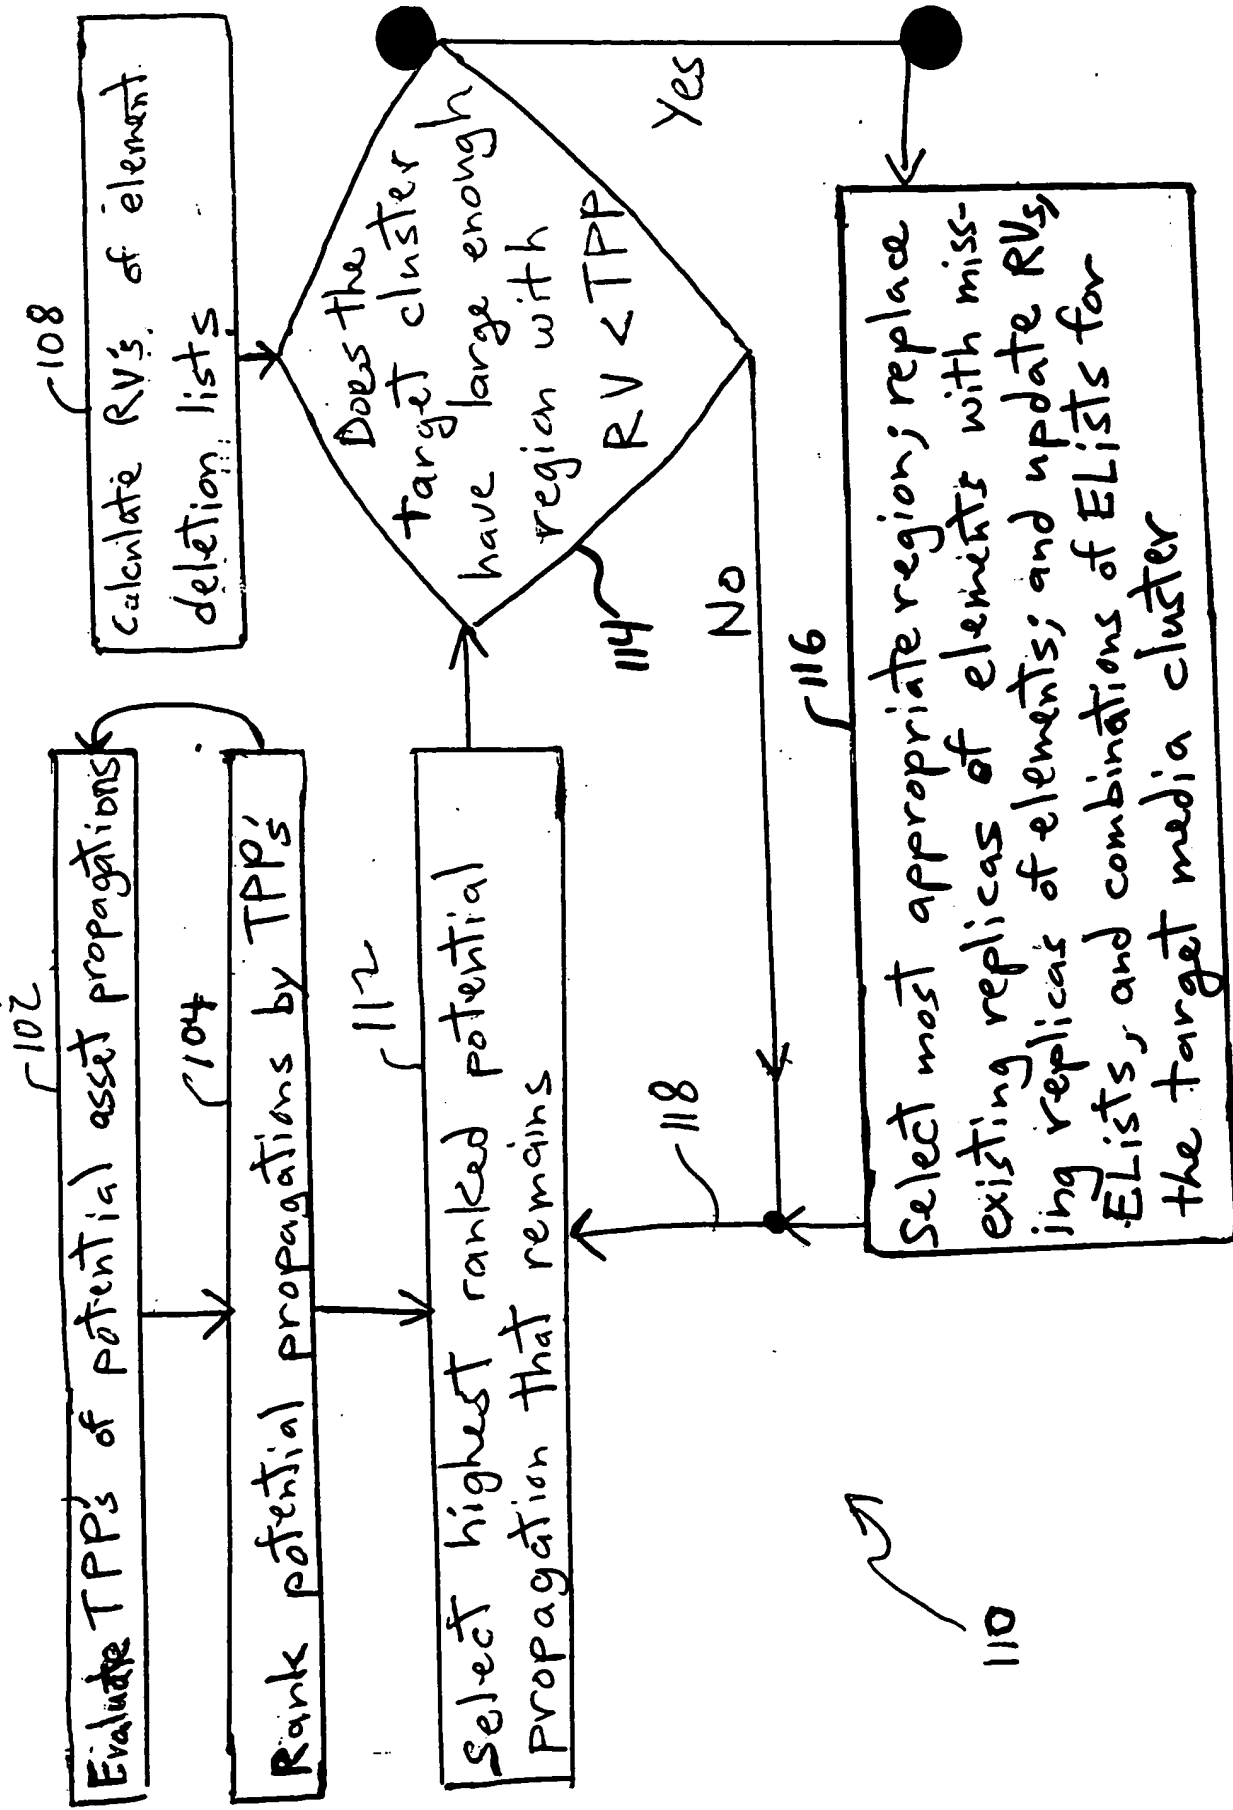 102
Evaluate TPP's of potential asset propagations
104
Rank potential propagations by TPP's
112
Select highest ranked potential
propagation that remains
108
Calculate RV's of element
deletion lists
Does the
target cluster
have large enough
region with
RV < TPP
114
Yes
No
116
Select most appropriate region; replace
existing replicas of elements with miss-
ing replicas of elements; and update RVs,
ELists, and combinations of ELists for
the target media cluster
118
110